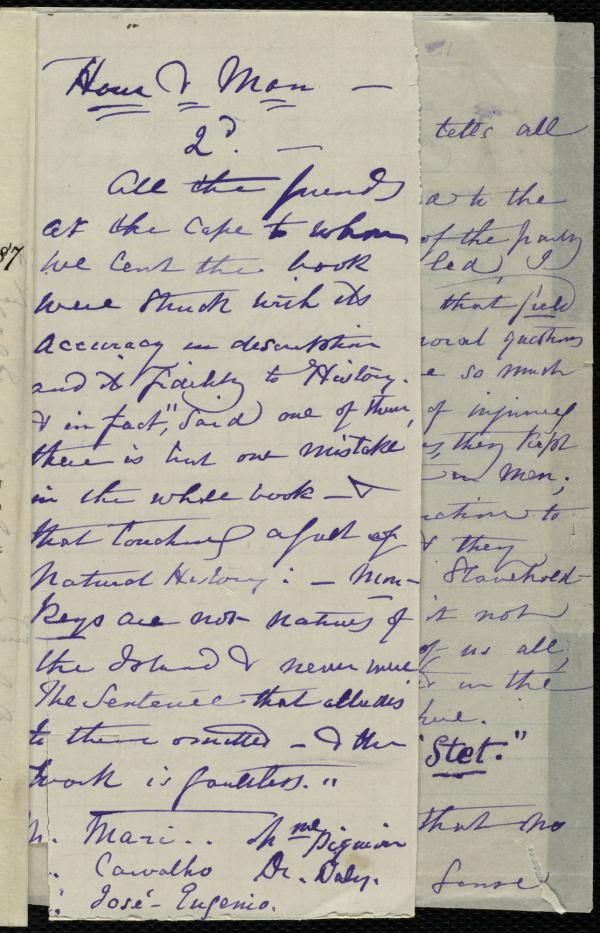 Hour & Man —
2d. —
All the friends
at the Cape to whom
we sent the book
were struck with its
accuracy in description
and its fidelity to History.
& in fact", said one of them,
there is but one mistake
in the whole book — &
that touching a fact of
Natural History: — Mon-
keys are not natives of
the Island & never were
The Sentence that alludes
to them omitted — & the
work is faultless."
Mari.. Mme
Carvalho Dr. Daly.
José-Eugenio.
87
tells all
to the
of the party
led, I
that field
moral questions
so much
of injuring
they kept
men;
to
& they
Slavehold-
it not
of us all,
in the
"Stet."
that no
Sense